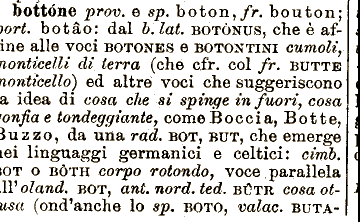 bottóne prov. e sp. boton, fr. bouton;
port. botâo: dal b. lat. BOTÒNUS, che è af-
fine alle voci BOTONES e BOTONTINI cumoli,
monticelli di terra (che cfr. col fr. BUTTE
monticello) ed altre voci che suggeriscono
la idea di cosa che si spinge in fuori, cosa
gonfia e tondeggiante, come Boccia, Botte,
Buzzo, da una rad. BOT, BUT, che emerge
nei linguaggi germanici e celtici: cimb.
BOT o BÔTH corpo rotondo, voce parallela
all'oland. BOT, ant. nord. ted. BÛTR cosa ot-
tusa (ond'anche lo sp. BOTO, valac. BUTA-